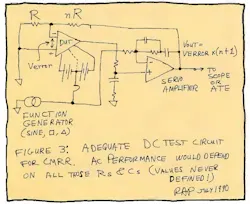 R
nR
DUT
Verror
VOUT =
VERROR × (n+1)
SERVO
AMPLIFIER
TO
SCOPE
OR ATE
FUNCTION
GENERATOR
(SINE, □, Δ)
FIGURE 3: ADEQUATE DC TEST CIRCUIT
FOR CMRR. AC PERFORMANCE WOULD DEPEND
ON ALL THOSE Rs & Cs (VALUES NEVER
DEFINED!)
RAP JULY 1990